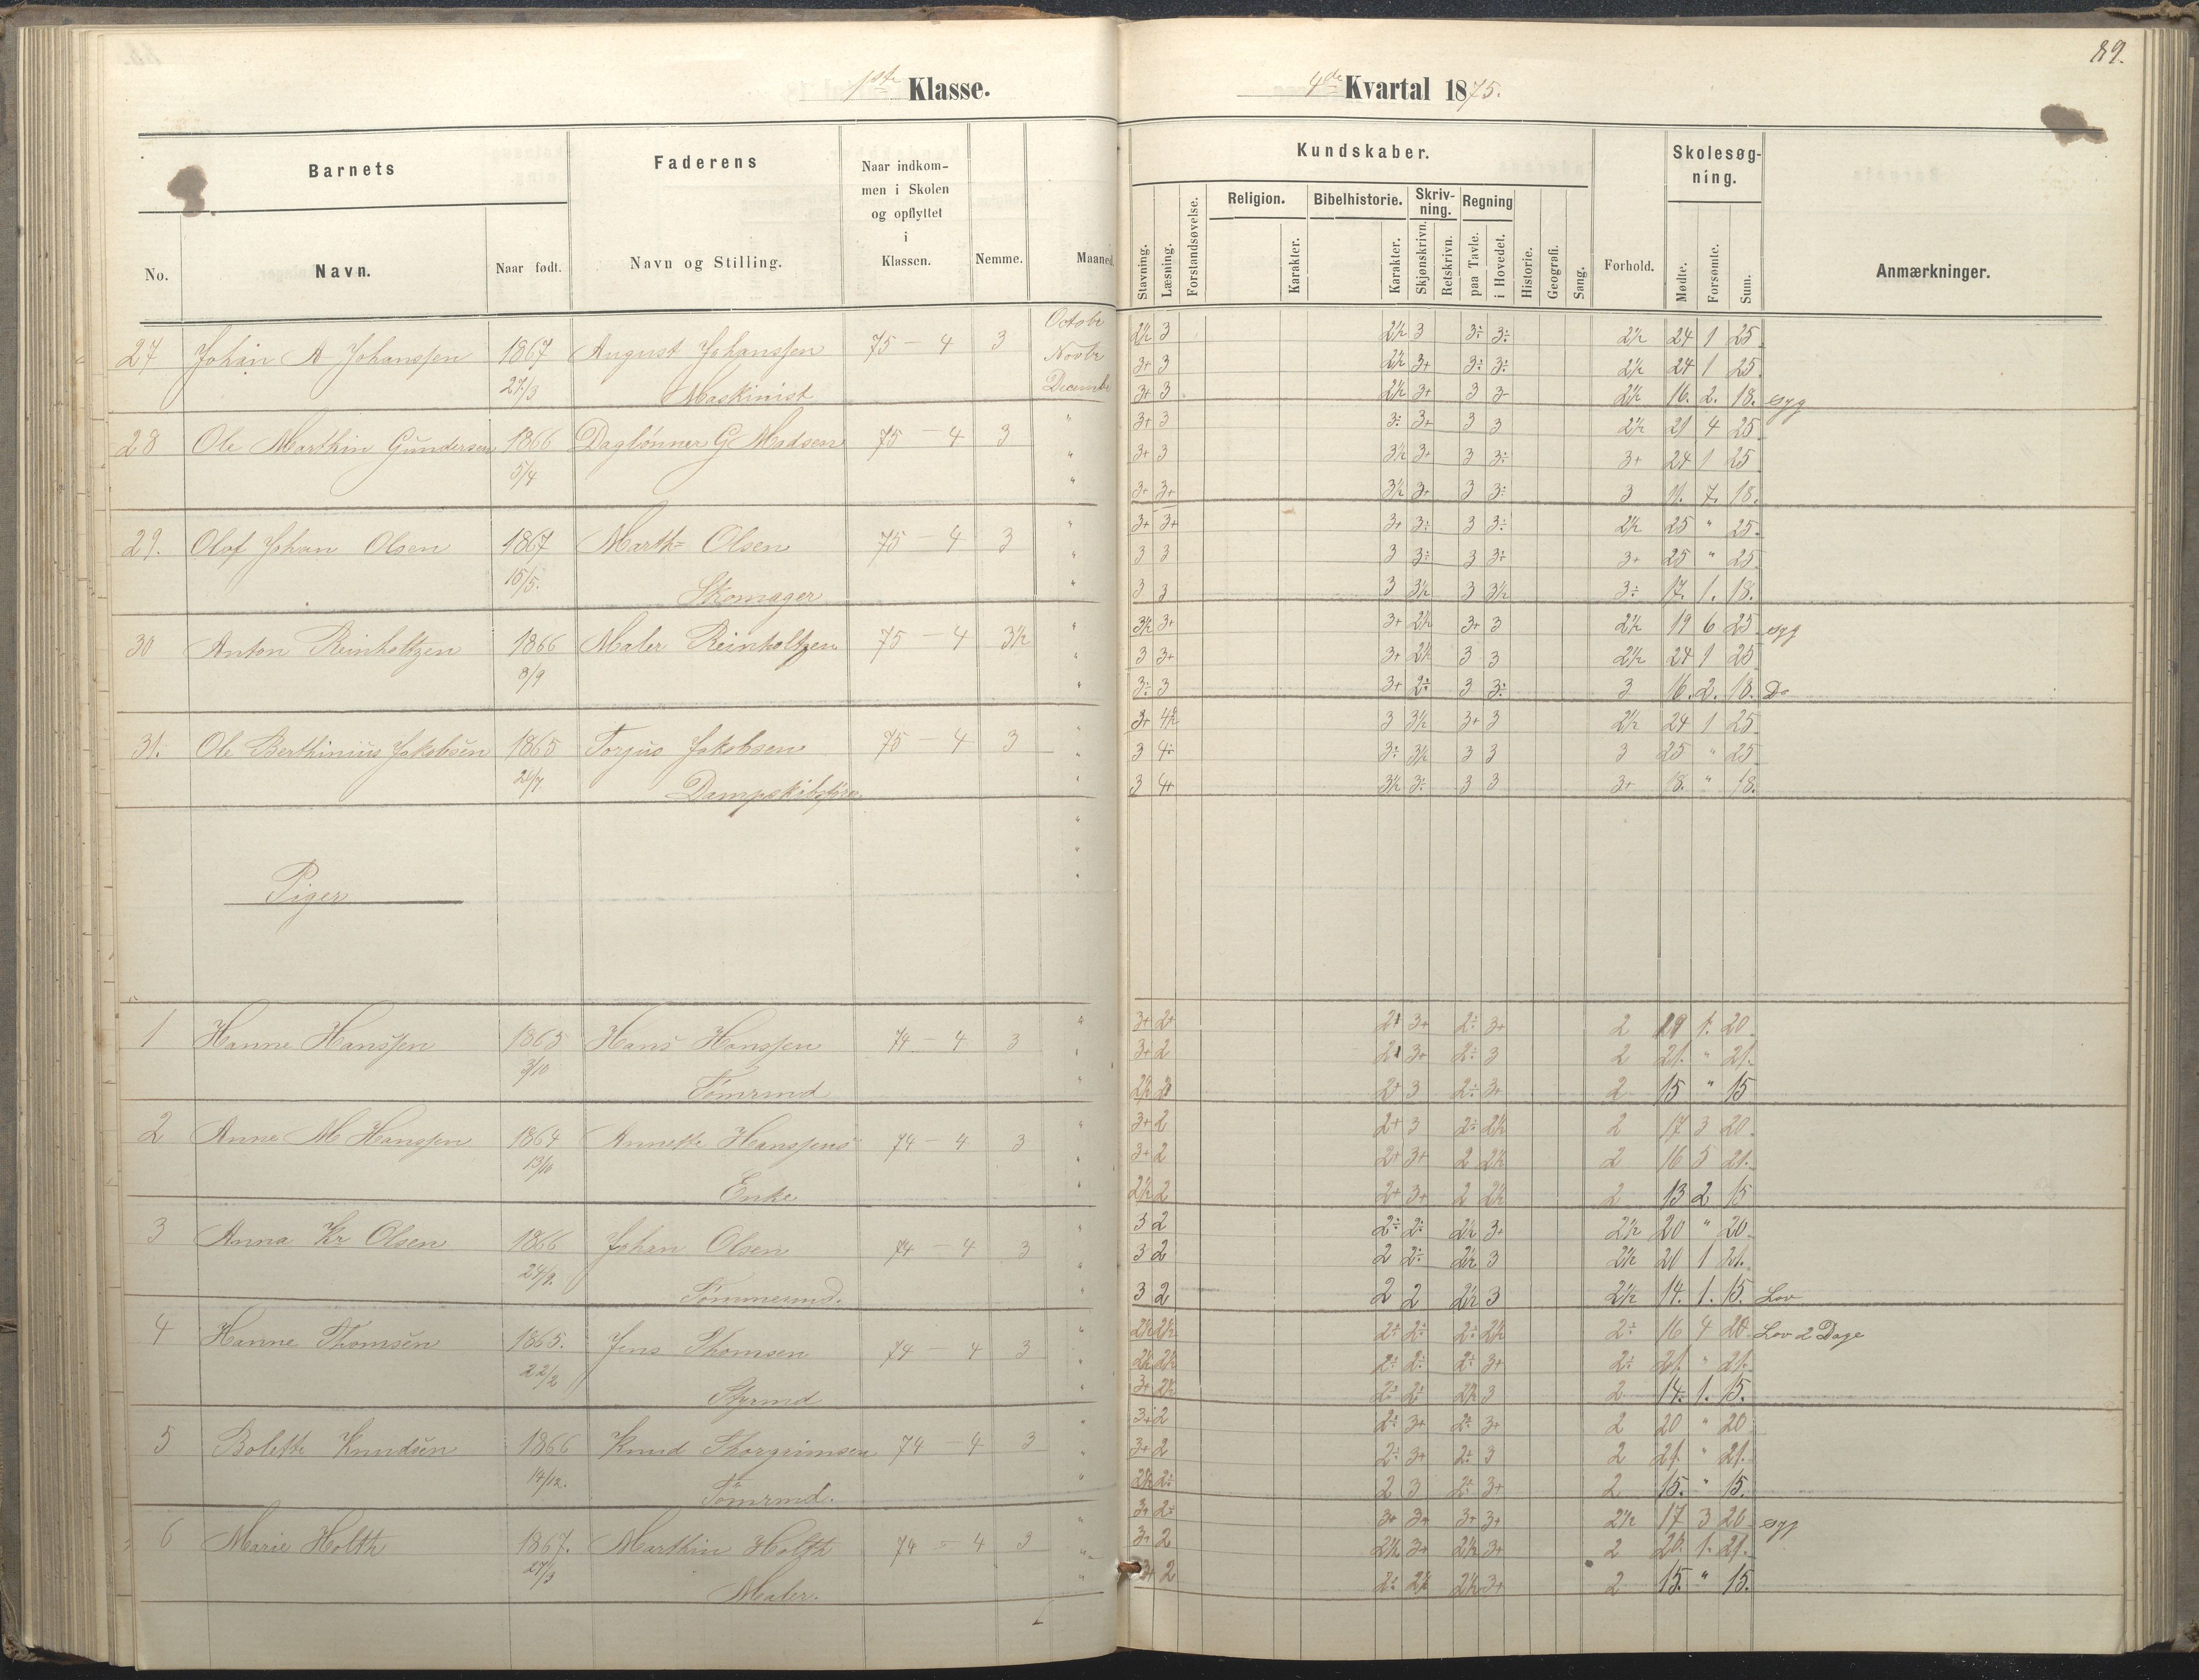 89.
1ste Klasse.
4de Kvartal 1875.
Barnets
Faderens
Naar indkom-
men i Skolen
og opflyttet
i
Klassen.
No.
Navn.
Naar født.
Navn og Stilling.
Nemme.
Maaned.
Kundskaber.
Skolesøg-
ning.
Stavning.
Læsning.
Forstandsøvelse.
Religion.
Karakter.
Bibelhistorie.
Karakter.
Skriv-
ning.
Skjønskrivn.
Retskrivn.
Regning
paa Tavle.
i Hovedet.
Historie.
Geografi.
Sang.
Forhold.
Mødte.
Forsømte.
Sum.
Anmærkninger.
27 Johan A Johanssen 1867 August Johanssen 75 - 4 3 Octobr 2½ 3 2½ 3 3÷ 3÷ 2½ 24 1 25
27/3 Maskinist Novbr 3+ 3 2½ 3+ 3÷ 3÷ 2½ 24 1 25.
Decembr 3+ 3 2½ 3+ 3 3÷ 2½ 16. 2. 18. syg
28 Ole Marthin Gundersen 1866 DagLønner G Madsen 75 - 4 3 " 3+ 3 3÷ 3+ 3 3 2½ 21 4 25
5/4 " 3+ 3 3½ 3+ 3 3÷ 3+ 24 1 25
" 3+ 3+ 3½ 3+ 3 3÷ 3 11. 7. 18.
29. Olaf Johan Olsen 1867 Marth= Olsen 75 - 4 3 " 3+ 3+ 3+ 3÷ 3 3÷ 2½ 25 " 25.
15/5. Skomager " 3 3 3 3÷ 3 3÷ 3+ 25 " 25.
" 3 3 3 3½ 3 3½ 3÷ 17. 1. 18.
30 Anton Reinholtzen 1866 Maler Reinholtzen 75 - 4 3½ " 3½ 3+ 3+ 2½ 3+ 3 2½ 19 6 25 syg
8/9 " 3 3+ 3+ 2½ 3 3 2½ 24 1 25
" 3÷ 3 3+ 2÷ 3 3÷ 3 16. 2. 18. Do
31. Ole Berthinius Jakobsen 1865 Torjus Jakobsen 75 - 4 3 " 3+ 4½ 3 3½ 3+ 3 2½ 24 1 25
Dampskibsfører " 3 4÷ 3÷ 3½ 3 3 3 25 " 25
" 3 4+ 3½ 3÷ 3 3 3+ 18. " 18.
Piger
1 Hanne Hanssen 1865 Hans Hanssen 74 - 4 3 " 3+ 2+ 3+ 2÷ 3+ 2 19 1. 20.
3/10 Tømrmd " 3+ 2 3+ 2÷ 3 2 21. " 21.
" 2½ 2+ 3 2÷ 3+ 2 15 " 15
2 Anne M Hanssen 1864 Annette Hanssens 74 - 4 3 " 3+ 2 2+ 3 2÷ 2½ 2 17 3 20.
13/10 Enke " 3+ 2 2+ 3+ 2 2½ 2 16 5 21.
2½ 2 2+ 3+ 2 2½ 2 13 2 15
3 Anna Kr Olsen 1866 Johan Olsen 74 - 4 3 " 3 2 2÷ 2÷ 2½ 3+ 2½ 20 " 20.
24/9. Tømmermd. " 3 2 2 2÷ 2½ 3 2½ 20 1 21.
" 3 2 2 2 2½ 3 2½ 14. 1. 15. Lov
4 Hanne Thomsen 1865. Jens Thomsen 74 - 4 3 " 2½ 2½ 2÷ 2÷ 2÷ 2½ 2÷ 16 4 20 Lov 2 Dage
22/2 Styrmd " 2½ 2½ 2÷ 2÷ 2÷ 3+ 2÷ 21. " 21.
" 3+ 2½ 2÷ 2÷ 2½ 3 2 14. 1. 15.
5 Bolette Knudsen 1866 Knud Thorgrimsen 74 - 4 3 " 3+ 2 2÷ 3+ 2÷ 3+ 2 20 " 20
14/12. Tømrmd. " 3+ 2 2÷ 3+ 2÷ 3 2 21. " 21.
" 2½ 2÷ 2 3 2÷ 3+ 2 15. " 15.
6 Marie Holth 1867. Marthin Holth 74 - 4 3 " 3+ 2÷ 3+ 3+ 3+ 3+ 2½ 17 3 20 syg
27/3 Maler. " 3+ 2 2½ 3+ 2½ 3+ 2 20. 1. 21.
" 2 2÷ 2½ 2½ 3+ 2 15. " 15.